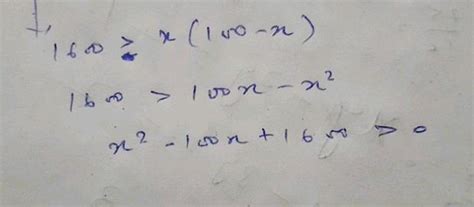 1600 ≥ x(100-x)
1600 > 100x - x²
x² - 100x + 1600 > 0